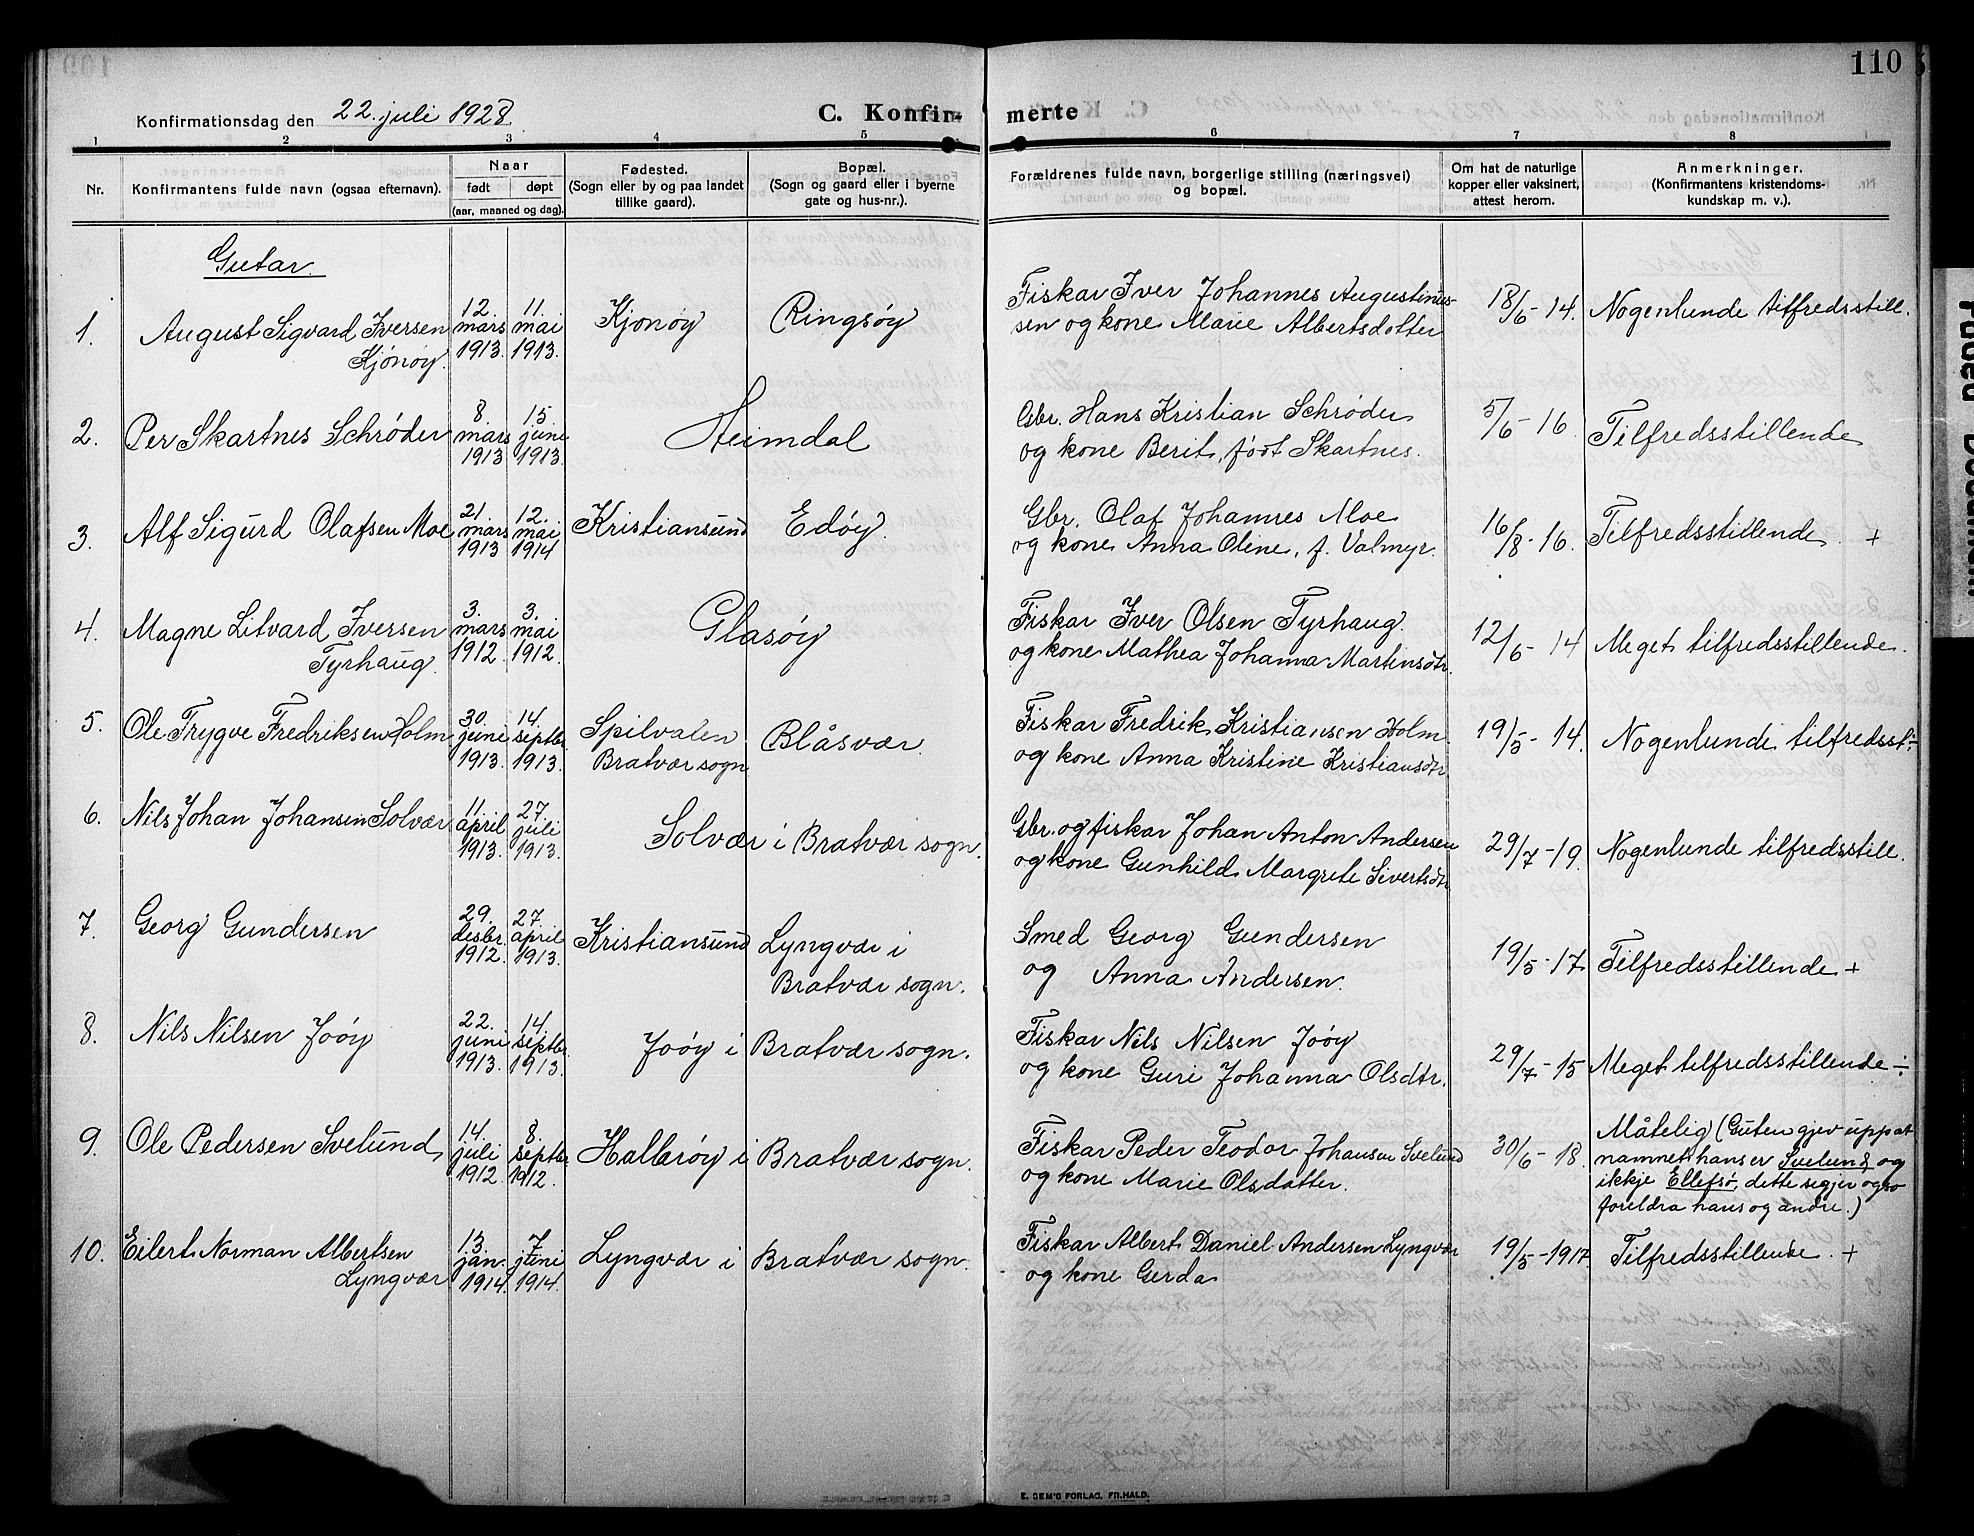 110
Konfirmationsdag den 22. juli 1928.
C. Konfirmerte
1 2 3 4 5 6 7 8
Nr.
Konfirmantens fulde navn (ogsaa efternavn).
Naar
født døpt
(aar, maaned og dag).
Fødested.
(Sogn eller by og paa landet
tillike gaard).
Bopæl.
(Sogn og gaard eller i byerne
gate og hus-nr.).
Forældrenes fulde navn, borgerlige stilling (næringsvei)
og bopæl.
Om hat de naturlige
kopper eller vaksinert,
attest herom.
Anmerkninger.
(Konfirmantens kristendoms-
kundskap m. v.).
Gutar.
1. August Sigvard Iversen
Kjønøy.
12. mars 1913.
11. mai 1913.
Kjønøy
Ringsøy
Fiskar Iver Johannes Augustinus-
sen og kone Marie Albertsdotter
18/6 - 14.
Nogenlunde tilfredsstill.
2. Per Skartnes Schrøder
8 mars 1913
15. juni 1913.
Heimdal
Gbr. Hans Kristian Schrøder
og kone Berit, født Skartnes.
5/6 - 16.
Tilfredsstillende
3. Alf Sigurd Olafsen Moe
21. mars 1913
12. mai 1914
Kristiansund
Edøy.
Gbr. Olaf Johannes Moe
og kone Anna Oline, f. Valmyr.
16/8 - 16.
Tilfredsstillende. +
4. Magne Litvard Iversen
Tyrhaug.
3. mars 1912.
3. mai 1912.
Glasøy
Fiskar Iver Olsen Tyrhaug.
og kone Mathea Johanna Martinsdtr.
12/6 - 14
Meget tilfredsstillende.
5. Ole Trygve Fredriksen Holm
30. juni 1913.
14. septbr. 1913.
Spilvalen
Bratvær sogn
Blåsvær.
Fiskar Fredrik Kristiansen Holm.
og kone Anna Kristine Kristiansdtr.
19/5 - 14.
Nogenlunde tilfredsst. ÷
6. Nils Johan Johansen Solvær
11 april 1913.
27. juli 1913.
Solvær i Bratvær sogn.
Gbr. og fiskar Johan Anton Andersen
og kone Gunhild Margrete Sivertsdtr.
29/7 - 19.
Nogenlunde tilfredsstill.
7. Georg Gundersen
29. desbr. 1912.
27. april 1913.
Kristiansund
Lyngvær i
Bratvær sogn.
Smed Georg Gundersen
og Anna Andersen.
19/5 - 17
Tilfredsstillende +
8. Nils Nilsen Joøy
22. juni 1913.
14. septbr. 1913.
Joøy i Bratvær sogn.
Fiskar Nils Nilsen Joøy
og kone Guri Johanna Olsdtr.
29/7 - 15
Meget tilfredsstillende ÷
9. Ole Pedersen Svelund
14. juli 1912.
8. septbr. 1912.
Hallarøy i Bratvær sogn.
Fiskar Peder Teodor Johansen Svelund
og kone Marie Olsdatter.
30/6 - 18.
Måtelig (Guten gjev upp at
namnet hans er Svelund og
ikkje Ellefsø, dette segjer også
foreldra hans og andre.)
10. Eilert Norman Albertsen
Lyngvær
13. jan. 1914.
7 juni 1914.
Lyngvær i Bratvær sogn.
Fiskar Albert Daniel Andersen Lyngvær
og kone Gerda
19/5 - 1917
Tilfredsstillende. +
E. SEM'S FORLAG, FR.HALD.